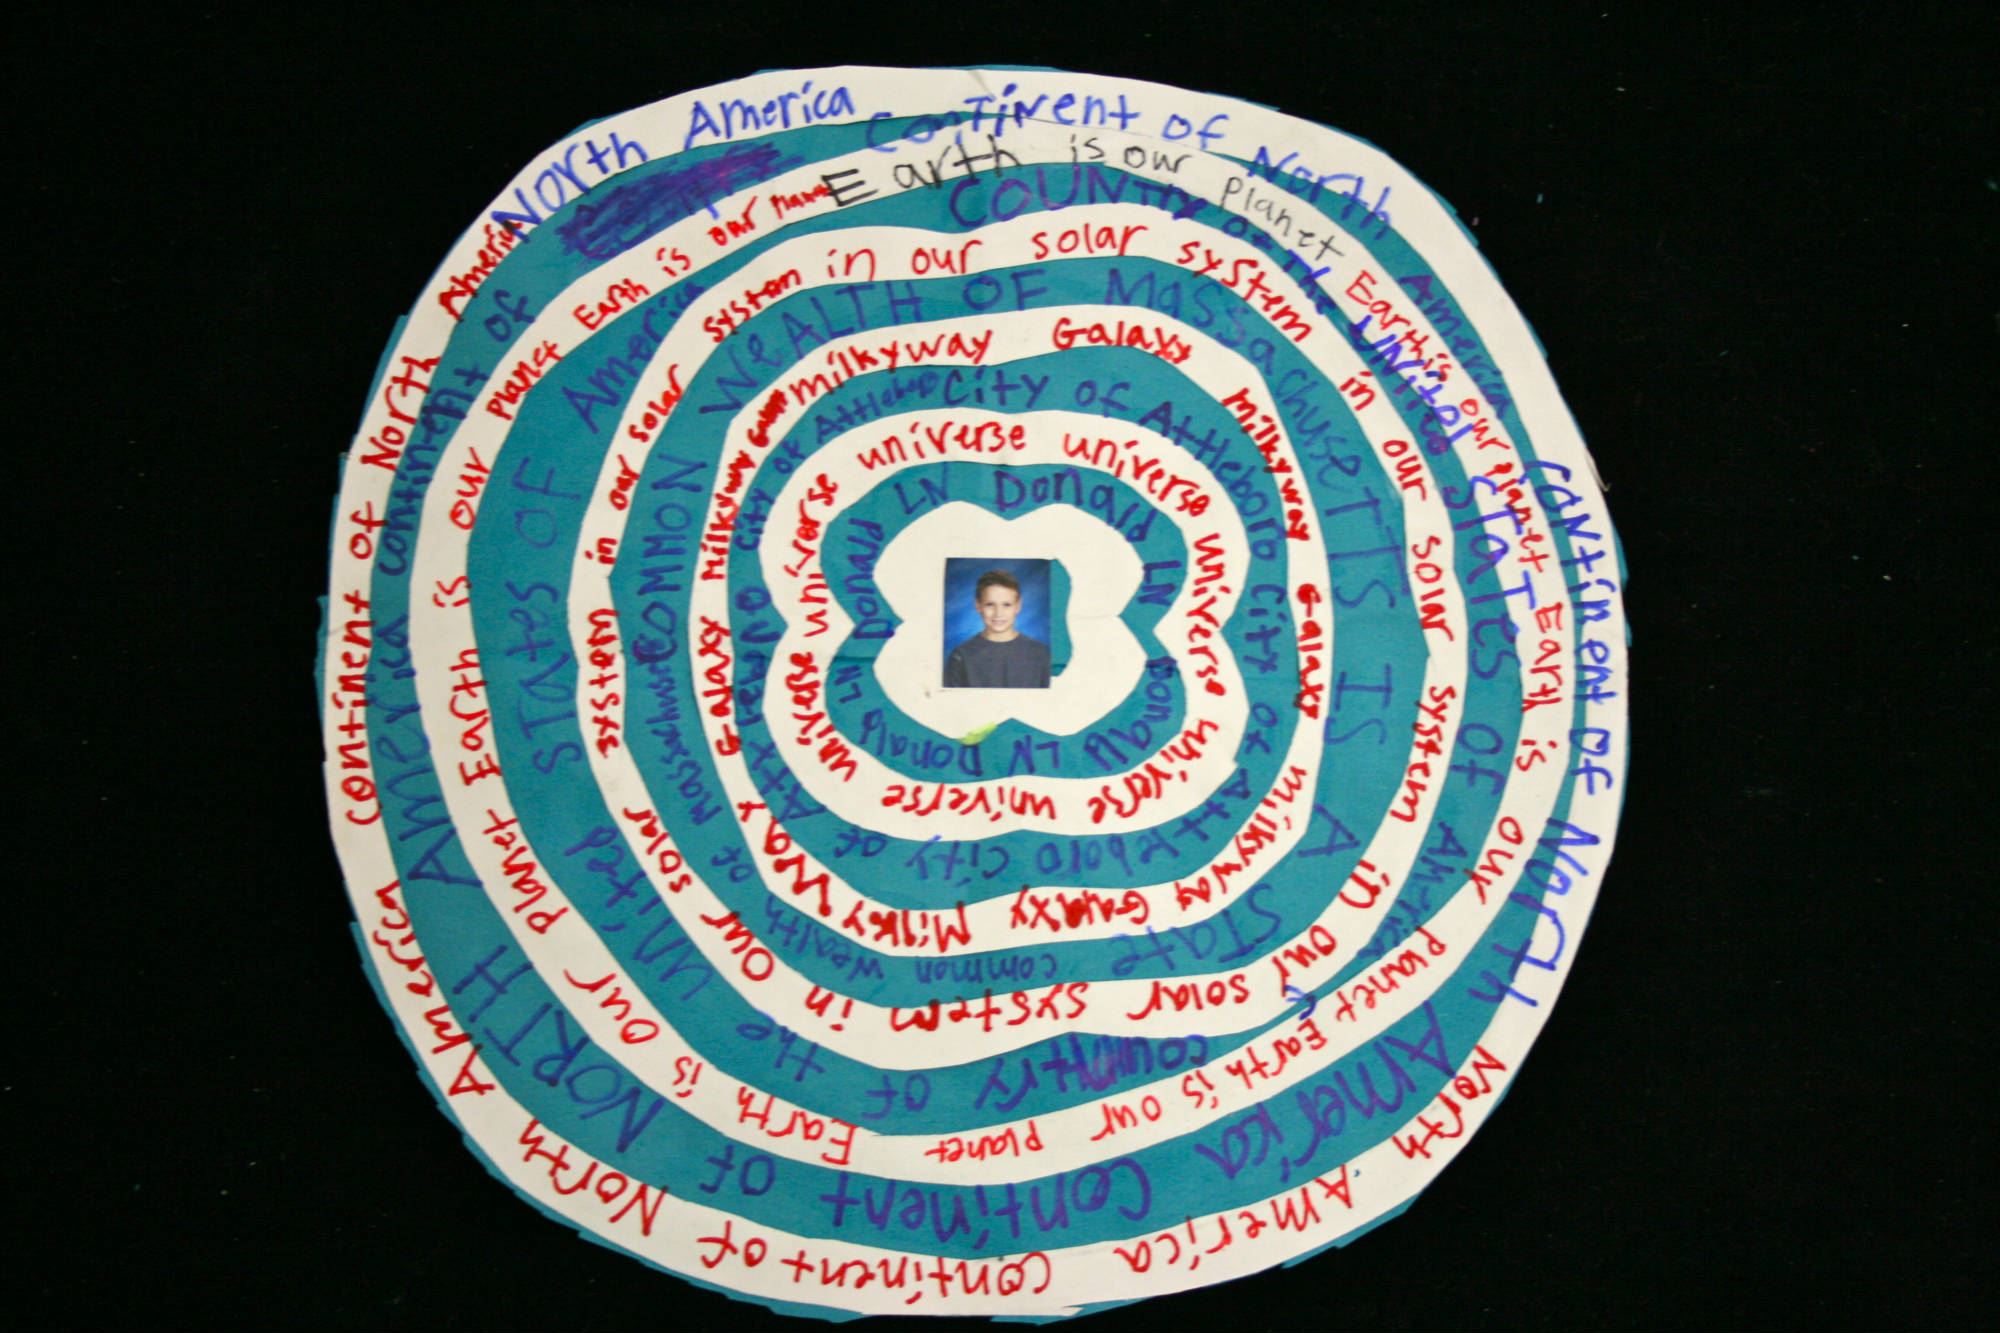 North America continent of North America continent of North America North America continent of North America continent of North America
continent of North America continent of North America
Earth is our Planet Earth is our Planet Earth is our Planet Earth is our planet Earth is our planet Earth is our Planet Earth is our
COUNTRY OF The UNITED STATES OF country OF the United STATES OF America
in our solar system in our solar system in our solar system in our solar system in our solar system
COMMON WeALTH OF MASSachuseTTS IS A STATe common wealth of
milkyway Galaxy milkyway Galaxy milkyway Galaxy Milky way Galaxy milkyway
City of Attleboro City of Attleboro City of City of Attleboro
universe universe universe universe universe universe universe universe universe universe
Donald LN Donald LN Donald LN Donald LN Donald LN